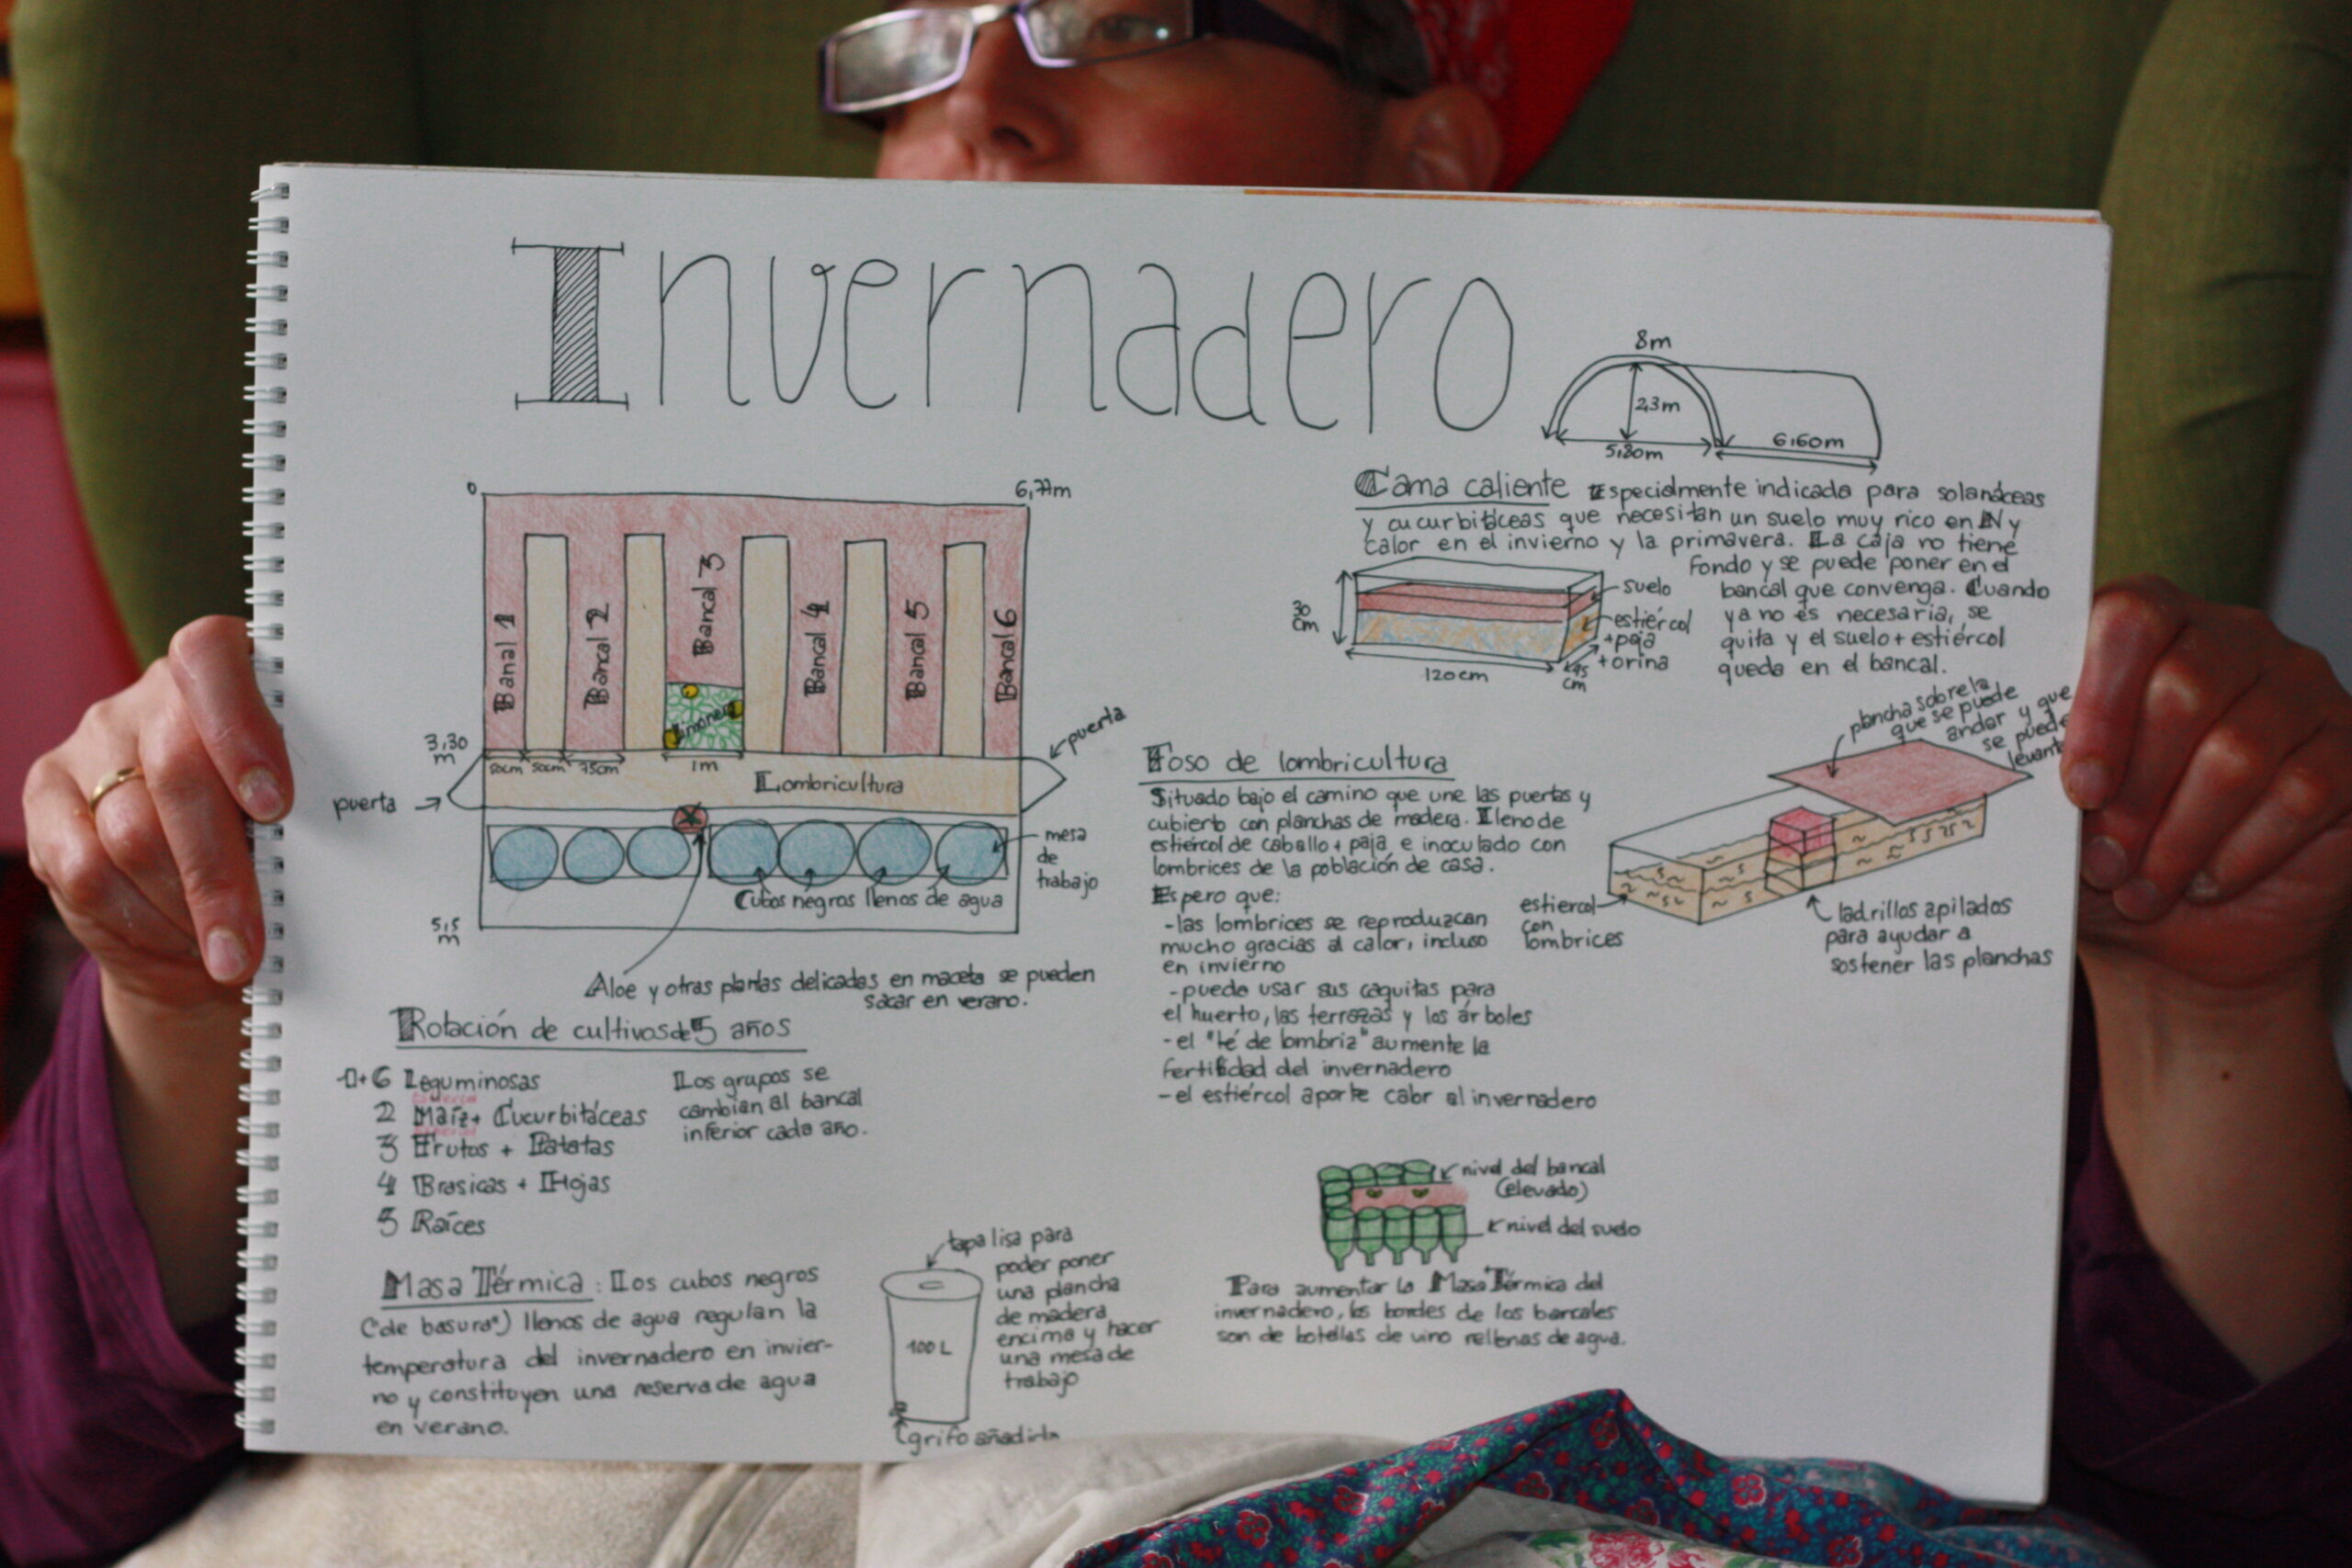 Invernadero
8m
2,3m
5,80m
6,60m
0
6,77m
Bancal 1
Bancal 2
Bancal 3
Bancal 4
Bancal 5
Bancal 6
Limonero
3,30
m
50cm 50cm 75cm
1m
puerta
puerta
Lombricultura
mesa
de
trabajo
Cubos negros llenos de agua
5,5
m
Aloe y otras plantas delicadas en maceta se pueden
sacar en verano.
Cama caliente Especialmente indicada para solanáceas
y cucurbitáceas que necesitan un suelo muy rico en N y
calor en el invierno y la primavera. La caja no tiene
fondo y se puede poner en el
bancal que convenga. Cuando
ya no es necesaria, se
quita y el suelo + estiércol
queda en el bancal.
30
cm
120cm
45
cm
suelo
estiércol
+ paja
+ orina
Foso de lombricultura
Situado bajo el camino que une las puertas y
cubierto con planchas de madera. Lleno de
estiércol de caballo + paja e inoculado con
lombrices de la población de casa.
Espero que:
- las lombrices se reproduzcan
mucho gracias al calor, incluso
en invierno
- pueda usar sus caquitas para
el huerto, las terrazas y los árboles
- el "té de lombriz" aumente la
fertilidad del invernadero
- el estiércol aporte calor al invernadero
plancha sobre la
que se puede
andar y que
se puede
levantar
estiercol
con
lombrices
ladrillos apilados
para ayudar a
sostener las planchas
Rotación de cultivos de 5 años
1+6 Leguminosas
2 Maíz + Cucurbitáceas
3 Frutos + Patatas
4 Brasicas + Hojas
5 Raíces
Los grupos se
cambian al bancal
inferior cada año.
Masa Térmica: Los cubos negros
("de basura") llenos de agua regulan la
temperatura del invernadero en invier-
no y constituyen una reserva de agua
en verano.
tapa lisa para
poder poner
una plancha
de madera
encima y hacer
una mesa de
trabajo
100 L
grifo añadido
nivel del bancal
(elevado)
nivel del suelo
Para aumentar la Masa Térmica del
invernadero, los bordes de los bancales
son de botellas de vino rellenas de agua.